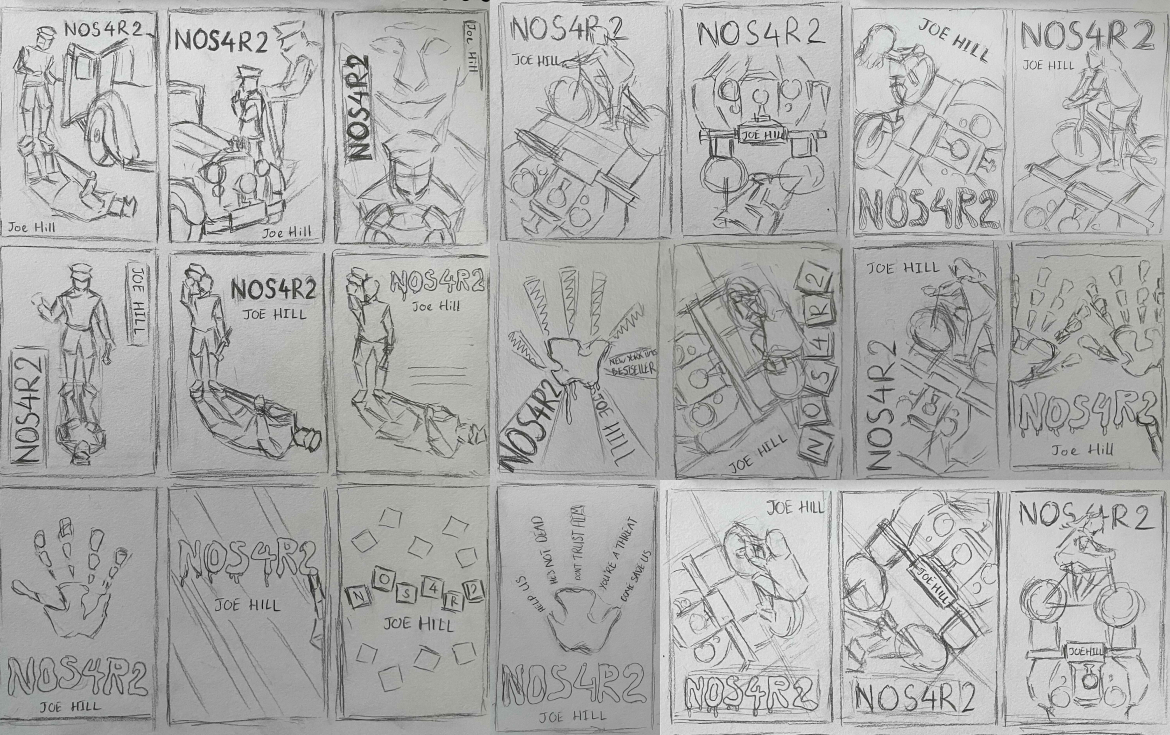 NOS4R2
Joe Hill
NOS4R2
Joe Hill
Joe Hill
NOS4R2
NOS4R2
JOE HILL
NOS4R2
JOE HILL
JOE HILL
NOS4R2
NOS4R2
JOE HILL
JOE HILL
NOS4R2
NOS4R2
JOE HILL
NOS4R2
Joe Hill
NEW YORK
BESTSELLER
NOS4R2
JOE HILL
NOS4R2
JOE HILL
JOE HILL
NOS4R2
NOS4R2
Joe Hill
NOS4R2
JOE HILL
NOS4R2
JOE HILL
NOS4R2
JOE HILL
HELP US
HE'S NOT DEAD
DONT TRUST HIM
YOU'RE A THREAT
COME SAVE US
NOS4R2
JOE HILL
JOE HILL
NOS4R2
JOE HILL
NOS4R2
NOS4R2
JOE HILL